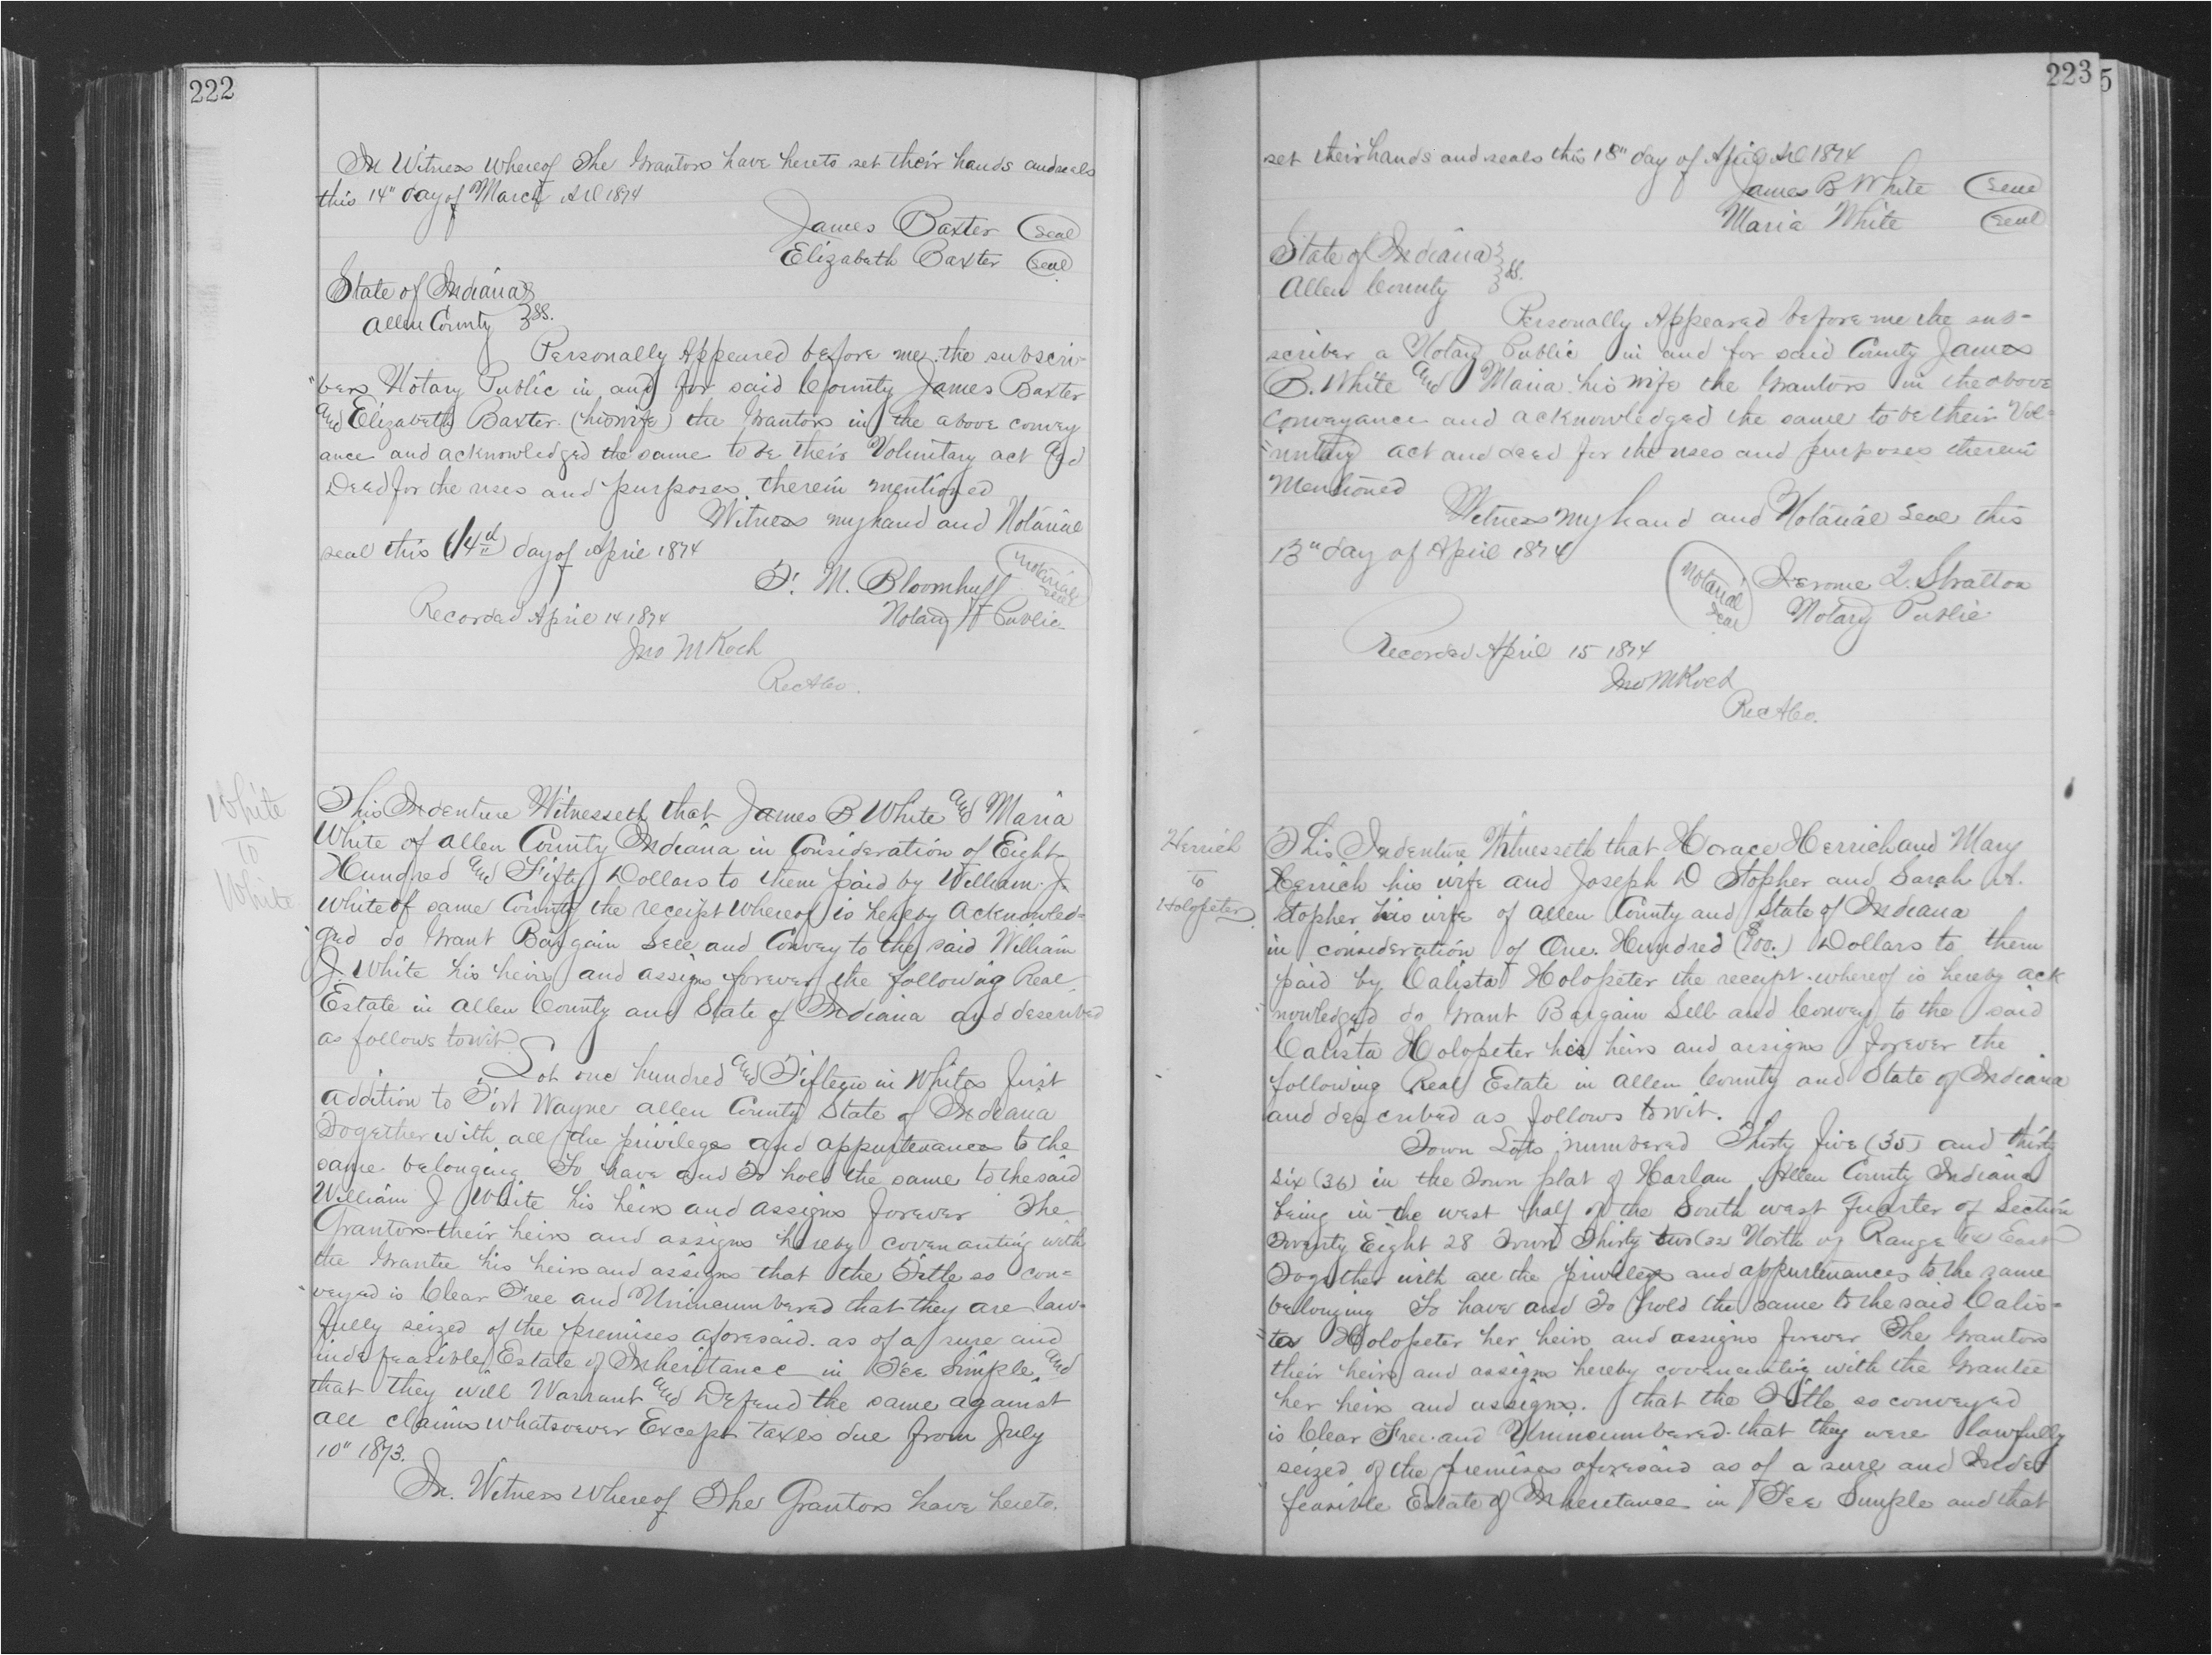 222
In Witness Whereof The Grantors have hereto set their hands and seals
this 14" day of March AD 1874
James Baxter (Seal)
Elizabeth Baxter (Seal)
State of Indiana }
Allen County } SS.
Personally Appeared before me the subscri-
"bers Notary Public in and for said County James Baxter
and Elizabeth Baxter (his wife) the Grantors in the above convey
ance and acknowledged the same to be their Voluntary act and
Deed for the uses and purposes therein mentioned
Witness my hand and Notarial
seal this (14th) day of April 1874
M. Bloomhuff Notarial Seal
Notary Public
Recorded April 14 1874
Jno M Koch
Rec A Co.
White
To
White
This Indenture Witnesseth that James B White and Maria
White of Allen County Indiana in Consideration of Eight
Hundred and Fifty Dollars to them paid by William J.
White of same County the receipt whereof is hereby Acknowled-
"ged do Grant Bargain Sell and Convey to the said William
J. White his heirs and assigns forever the following Real
Estate in Allen County and State of Indiana and described
as follows towit
Lot one hundred and Fifteen in Whites First
addition to Fort Wayne Allen County State of Indiana
Together with all the privileges and appurtenances to the
same belonging To have and To hold the same to the said
William J White his heirs and assigns forever The
Grantors their heirs and assigns hereby covenanting with
the Grantee his heirs and assigns that the Title so con=
"veyed is Clear Free and Unincumbered that they are law-
fully seized of the premises aforesaid. as of a sure and
indefeasible Estate of Inheritance in Fee Simple, and
that they will Warrant and Defend the same against
all claims whatsoever Except taxes due from July
10" 1873.
In Witness Whereof The Grantors have hereto.
223
5
set their hands and seals this 13" day of April AD 1874
James B White (Seal)
Maria White (Seal)
State of Indiana }
Allen County } SS.
Personally Appeared before me the sub-
scriber a Notary Public in and for said County James
B. White and Maria his wife the Grantors in the above
Conveyance and acknowledged the same to be their Vol=
"untary act and deed for the uses and purposes therein
Mentioned
Witness my hand and Notarial Seal this
13" day of April 1874
Notarial Seal Jerome Q. Stratton
Notary Public
Recorded April 15 1874
Jno M Koch
Rec A Co.
Herrick
to
Holopeter
This Indenture Witnesseth that Horace Herrick and Mary
Herrick his wife and Joseph D Stopher and Sarah A.
Stopher his wife of Allen County and State of Indiana
in consideration of One Hundred ($100.) Dollars to them
paid by Calista Holopeter the receipt whereof is hereby ack
"nowledged do Grant Bargain Sell and Convey to the said
Calista Holopeter her heirs and assigns forever the
following Real Estate in Allen County and State of Indiana
and described as follows towit.
Town Lots numbered Thirty five (35) and thirty
six (36) in the Town plat of Harlan Allen County Indiana
being in the west half of the South west quarter of Section
Twenty Eight 28 Town Thirty two (32) North of Range East
Together with all the privileges and appurtenances to the same
belonging To have and To hold the same to the said Calis=
"ta Holopeter her heirs and assigns forever The Grantors
their heirs and assigns hereby covenanting with the Grantee
her heirs and assigns. that the Title so conveyed
is Clear Free and Unincumbered that they were lawfully
seized of the premises aforesaid as of a sure and Inde
feasible Estate of Inheritance in Fee Simple and that